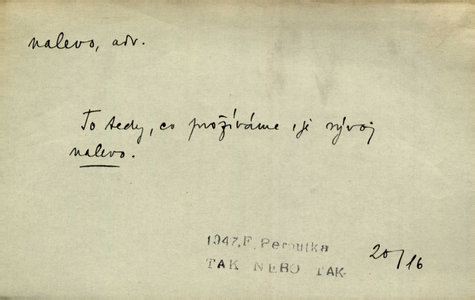 nalevo, adv.
To tedy, co prožíváme, je vývoj
nalevo.
1947, F. Peroutka
TAK NEBO TAK
20/16